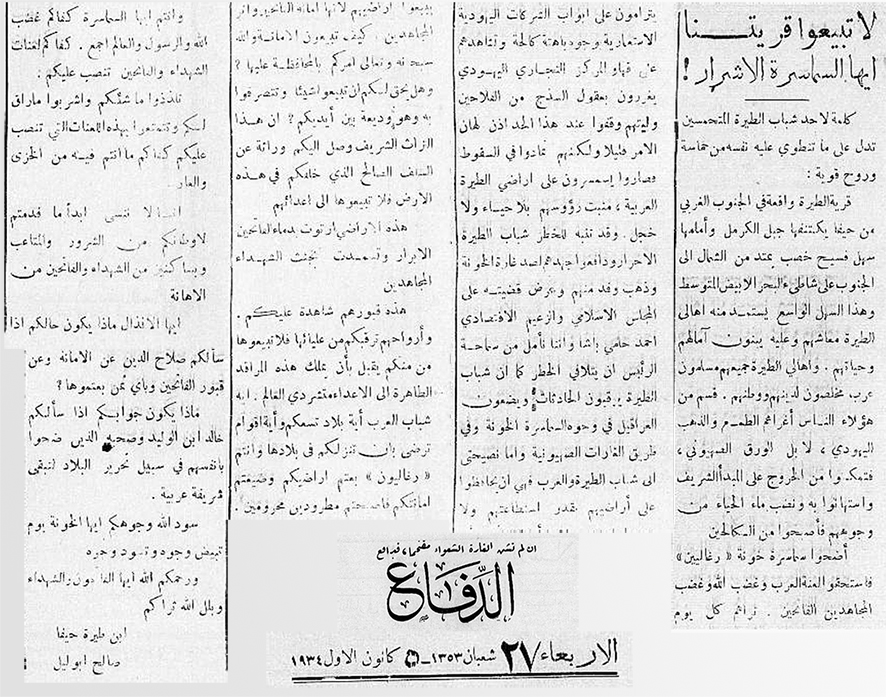 لا تبيعوا قريتــنا
ايها السماسرة الاشرار !
كلمة لاحد شباب الطيرة المتحمسين
تدل على ما تنطوي عليه نفسه من حماسة
وروح قوية :
قرية الطيرة واقعة في الجنوب الغربي
من حيفا يكتنفها جبل الكرمل وأمامها
سهل فسيح خصب يمتد من الشمال الى
الجنوب على شاطىء البحر الابيض المتوسط
وهذا السهل الواسع يستمد منه اهالي
الطيرة معاشهم وعليه يبنون آمالهم
وحياتهم . واهالي الطيرة جميعهم مسلمون
عرب مخلصون لدينهم ووطنهم . قسم من
هؤلاء النـاس أغراهم الطمــع والذهب
اليهودي ، لا بل الورق الصهيوني ،
فتمكنوا من الخروج على المبدأ الشريف
واستهانوا به ونضب ماء الحياء من
وجوههم فأصبحوا من المكالحين
أضحوا سماسرة خونة « رغاليين »
فاستحقوا لعنة العرب وغضب الله وغضب
المجاهدين الفاتحين . تراهم كل يوم
يترامون على ابواب الشركات اليهودية
الاستعمارية وجوه باهتة كالحة وتشاهدهم
على قهاو المركز التجاري اليهودي
يغررون بعقول السذج من الفلاحين
وليتهم وقفوا عند هذا الحد اذن لهان
الامر قليلا ولكنهم تمادوا في السقوط
وصاروا يسمسرون على اراضي الطيرة
العربية ، منبت رؤوسهم بلا حياء ولا
خجل . وقد تنبه للخطر شباب الطيرة
الاحرار ودافعوا جهدهم لصد غارة الخونة
وذهب وفد منهم وعرض قضيته على
المجلس الاسلامي والزعيم الاقتصادي
احمد حلمي باشا واننا نأمل من سماحة
الرئيس ان يتلافى الخطر كما ان شباب
الطيرة يرقبون الحادثات ويضعون
العراقيل في وجوه السماسرة الخونة وفي
طريق الغارات الصهيونية واما نصيحتي
الى شباب الطيرة والعرب فهي ان يحافظوا
على أراضيهم بقدر استطاعتهم ولا
يبيعوا اراضيهم لانها امانة الفاتحين واثر
المجاهدين . كيف تبيعون الامانة والله
سبحانه وتعالى امركم بالمحافظة عليها ؟
وهل يحق لكم ان تبيعوا شيئا وتتصرفوا
به وهو وديعة بين أيديكم ؟ ان هذا
التراث الشريف وصل اليكم وراثة عن
السلف الصالح الذي خلفكم في هذه
الارض فلا تبيعوها الى اعدائهم
هذه الاراضي ارتوت بدماء الفاتحين
الابرار وتسمدت بجثث الشهداء
المجاهدين
هذه قبورهم شاهدة عليكم .
وأرواحهم ترقبكم من عليائها فلا تبيعوها
من منكم يقبل بأن يملك هذه المراقد
الطاهرة الى الاعداء متشردي العالم . ايه
شباب العرب أية بلاد تسعكم وأية اقوام
ترضى بان تنزلكم في بلادها وانتم
« رغاليون » بعتم اراضيكم وضيعتم
امانتكم فاصبحتم مطرودين محرومين .
وانتم ايها السماسرة كفاكم غضب
الله والرسول والعالم اجمع . كفاكم لعنات
الشهداء والفاتحين تنصب عليكم :
تلذذوا ما شئتم واشربوا ما راق
لكم وتمتعوا بهذه اللعنات التي تنصب
عليكم كفاكم ما انتم فيه من الخزى
والعار .
اننا لا ننسى ابدا ما قدمتم
لاوطانكم من الشرور والمتاعب
وبما كنتم من الشهداء والفاتحين من
الاهانة
ايها الانذال ماذا يكون حالكم اذا
سألكم صلاح الدين عن الامانة وعن
قبور الفاتحين وباي ثمن بعتموها ؟
ماذا يكون جوابكم اذا سألكم
خالد ابن الوليد وصحبه الذين ضحوا
بأنفسهم في سبيل تحرير البلاد لتبقى
شريفة عربية .
سود الله وجوهكم ايها الخونة يوم
تبيض وجوه وتسود وجوه
ورحمكم الله ايها الفاتحون والشهداء
وبلل الله ثراكم
ابن طيرة حيفا
صالح ابو ليل
ان لم تشن الغارة الشعواء مقتحما ، فدافع
الدِّفاع
الاربعاء ٢٧ شعبان ١٣٥٣ - ٥ كانون الاول ١٩٣٤